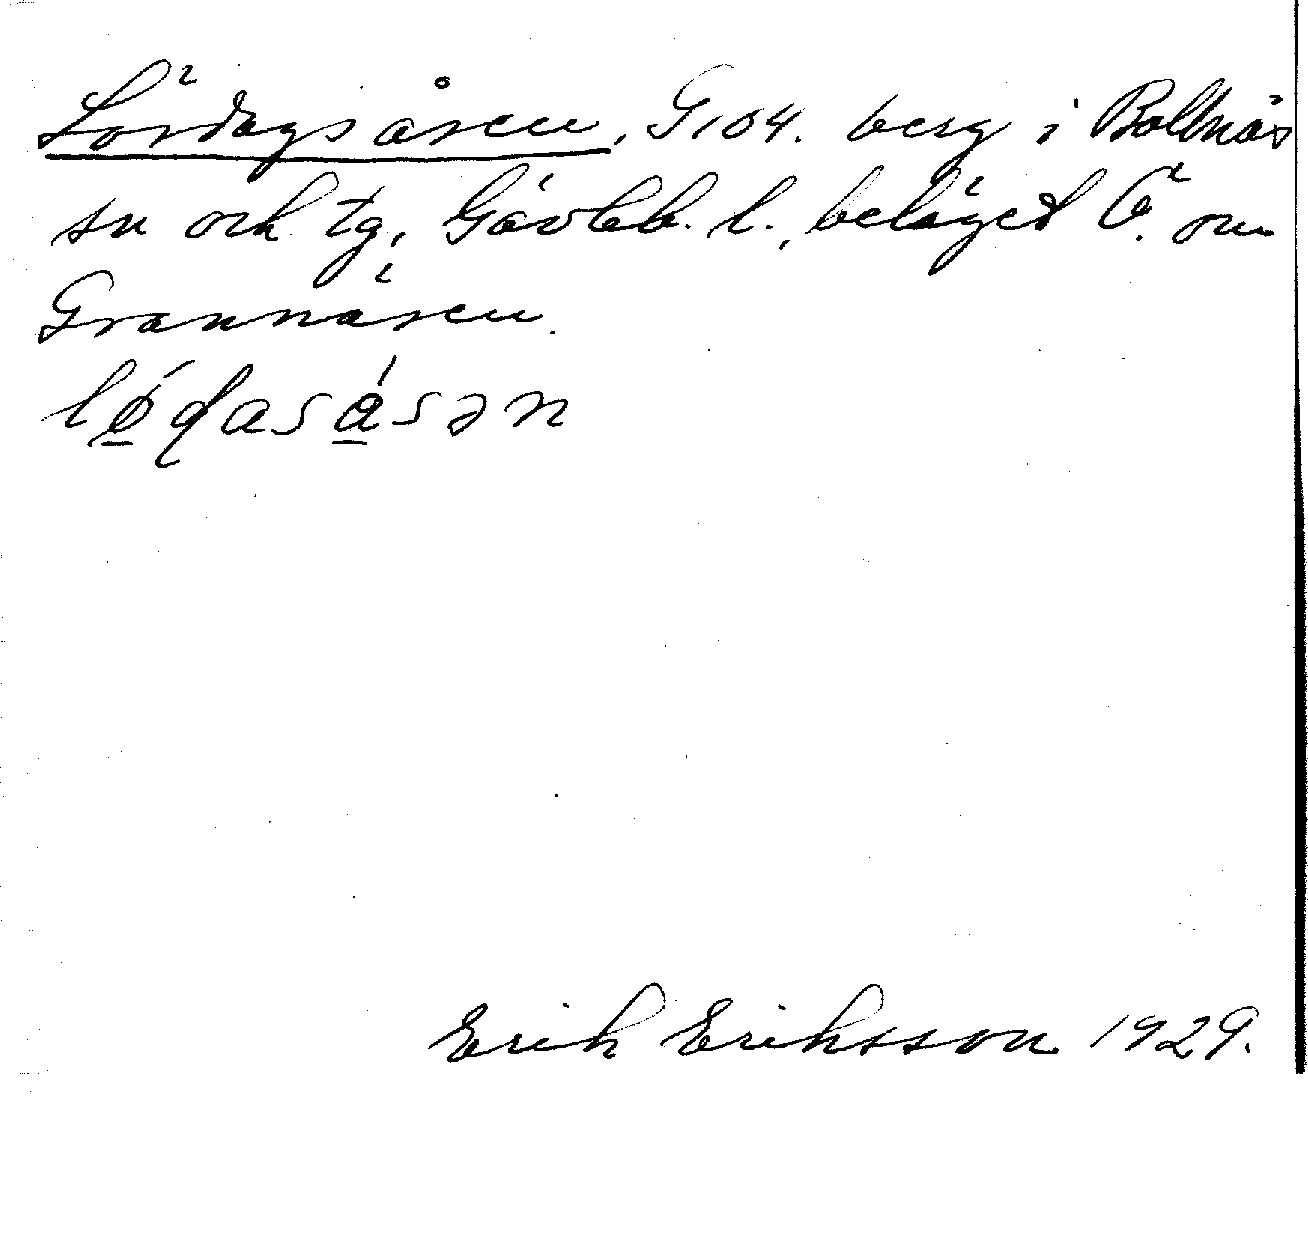 Lördagsåsen, G104. berg i Bollnäs
sn och tg, Gävleb. l., beläget Ö. om
Grannäsen.
lǿdasásən
Erik Eriksson 1929.